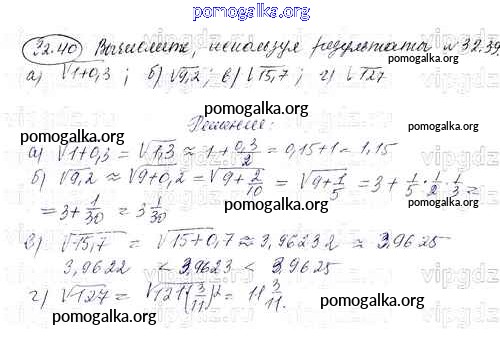 pomogalka.org
32.40 Вычислите, используя результаты №32.39
а) √1+0,3 ; б) √9,2 ; в) √15,7 ; г) √127
pomogalka.org
Решение:
pomogalka.org
а) √1+0,3 = √1,3 ≈ 1 + 0,3/2 = 0,15+1 = 1,15
б) √9,2 ≈ √9+0,2 = √9+2/10 = √9+1/5 = 3 + 1/5 · 1/2 · 1/3 =
= 3+1/30 = 3 1/30
pomogalka.org
pomogalka.org
в) √15,7 = √15+0,7 ≈ 3,96232 ≈ 3,9625
3,9622 < 3,9623 < 3,9625
г) √127 = √121(3/11)² = 11 3/11.
pomogalka.org
pomogalka.org